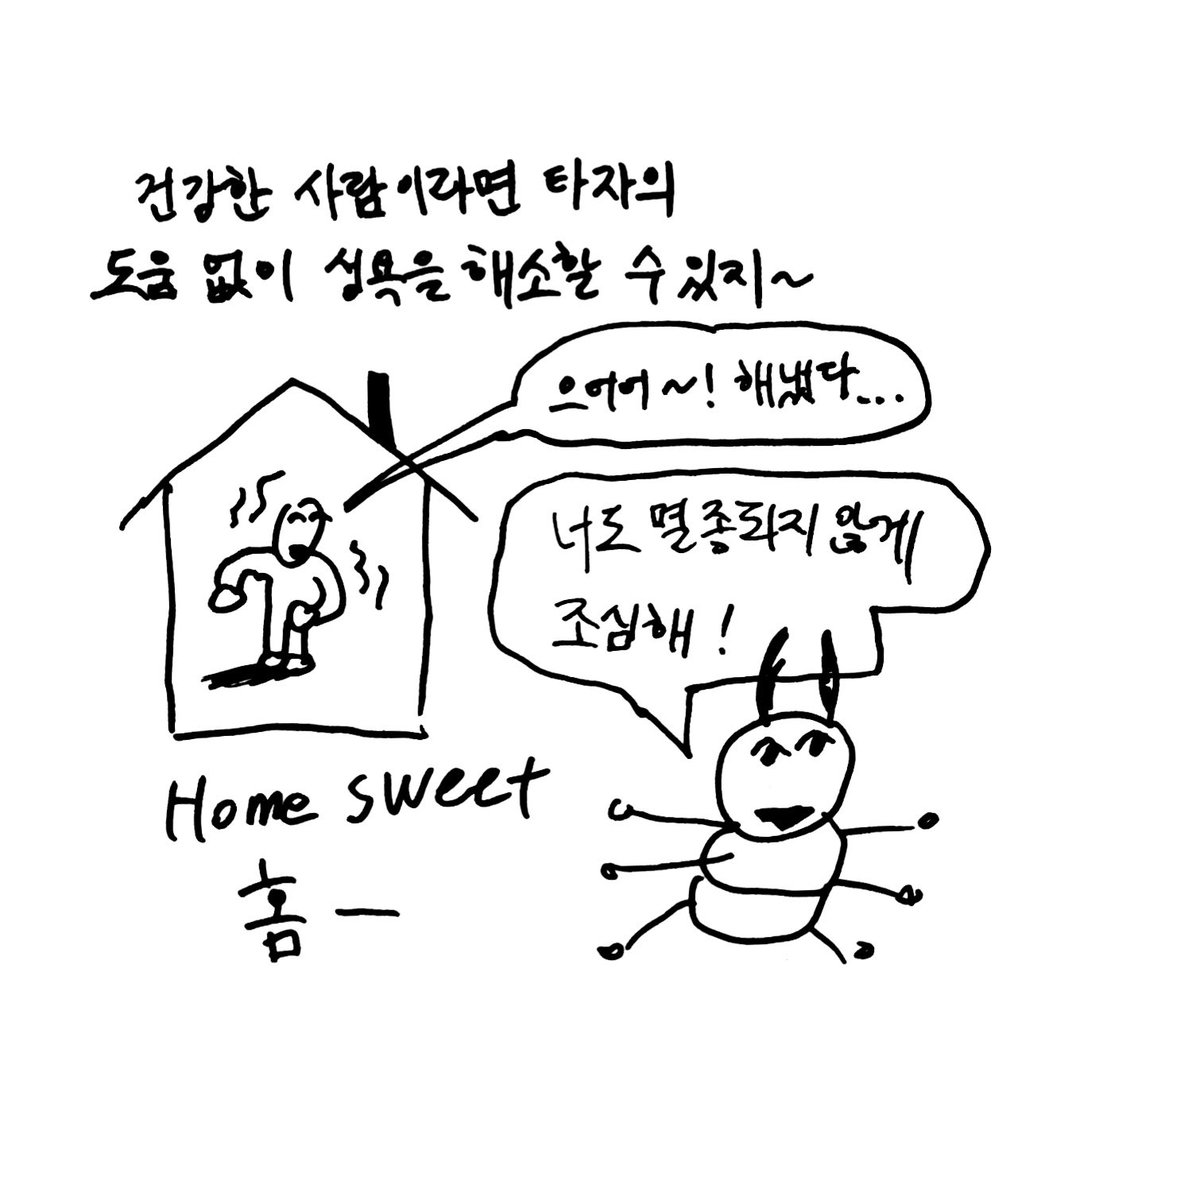 건강한 사람이라면 타자의
도움 없이 성욕을 해소할 수 있지~
으어어~! 해냈다...
너도 멸종되지 않게
조심해!
Home sweet
홈-